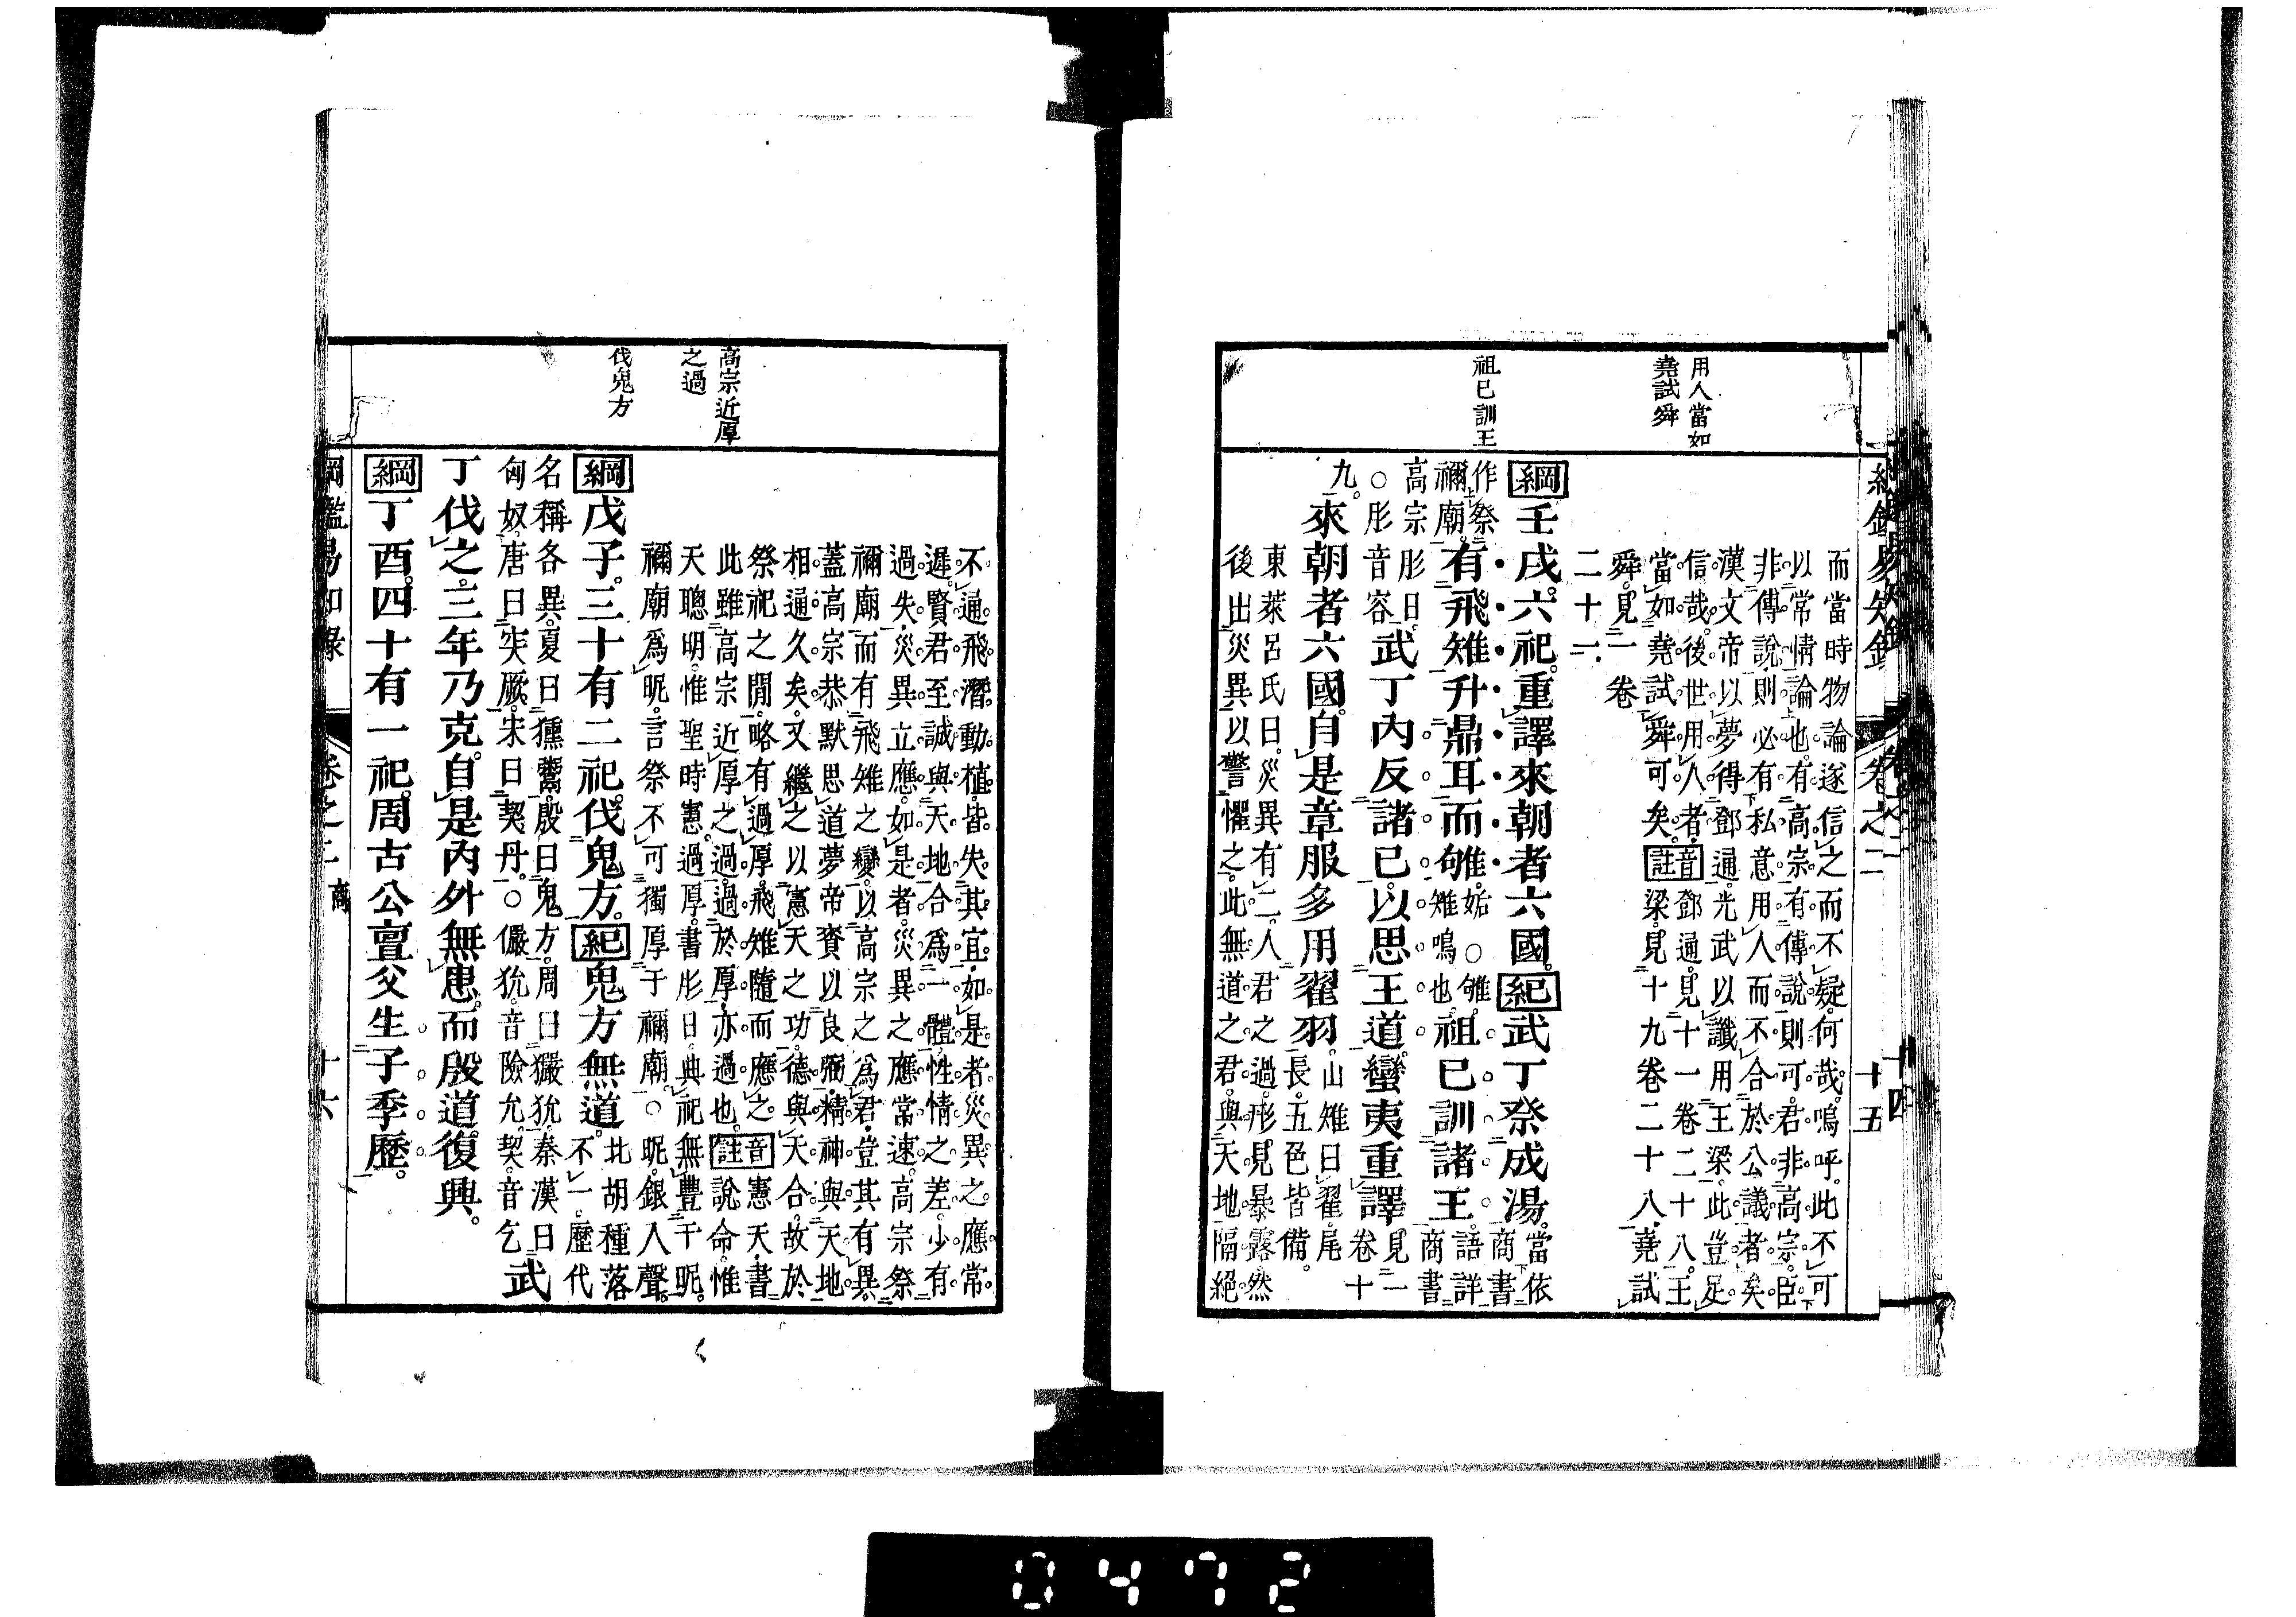 用人當如
堯試舜
祖已訓王
十五
而當時物論遂信之而不疑何哉嗚呼此不可
以常情論也有高宗有傅說則可君非高宗臣
非傅說則必有私意用人而不合於公議者矣
漢文帝以夢得鄧通光武以讖用王梁此豈足
信哉後世用人者音鄧通見十一卷二十八王
當如堯試舜可矣註梁見十九卷二十八堯試
舜見一卷
二十二
綱壬戌六祀重譯來朝者六國紀武丁祭成湯當依商書
作祭禰廟有飛雉升鼎耳而雊姤○雊雉鳴也祖已訓諸王語詳商書
高宗肜日○肜音容武丁內反諸已以思王道蠻夷重譯見一卷十
九來朝者六國自是章服多用翟羽山雉曰翟尾長五色皆備
東萊呂氏曰災異有二人君之過形見暴露然
後出災異以警懼之此無道之君與天地隔絕
高宗近厚
之過
伐鬼方
不通飛潛動植皆失其宜如是者災異之應常
遲賢君至誠與天地合為一體性情之差少有
過失災異立應如是者災異之應常速高宗祭
禰廟而有飛雉之變以高宗之為君豈其有異
蓋高宗恭默思道夢帝賚以良弼精神與天地
相通久矣又繼之以憲天之功德與天合故於
祭祀之閒略有過厚飛雉隨而應之音憲天書
此雖高宗近厚之過過於厚亦過也註說命惟
天聰明惟聖時憲過厚書肜日典祀無豐于昵
禰廟為昵言祭不可獨厚于禰廟○昵銀入聲
綱戊子三十有二祀伐鬼方紀鬼方無道北胡種落不一歷代
名稱各異夏曰獯鬻殷曰鬼方周曰玁狁秦漢曰
匈奴唐曰突厥宋曰契丹○儼狁音險允契音乞武
丁伐之三年乃克自是內外無患而殷道復興
綱丁酉四十有一祀周古公亶父生子季歷
綱鑑易知錄 卷之二 商 十六
0472